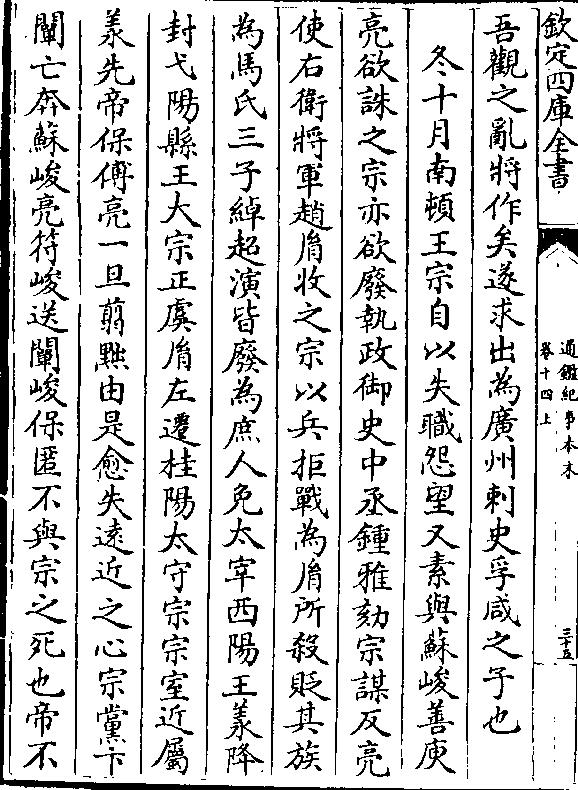 欽定四庫全書
通鑑紀事本末
卷十四上
三十五
吾觀之亂將作矣遂求出為廣州刺史孚咸之子也
冬十月南頓王宗自以失職怨望又素與蘇峻善庾
亮欲誅之宗亦欲廢執政御史中丞鍾雅劾宗謀反亮
使右衛將軍趙𦙍收之宗以兵拒戰為𦙍所殺貶其族
為馬氏三子綽超演皆廢為庶人免太宰西陽王羕降
封弋陽縣王大宗正虞𦙍左遷桂陽太守宗宗室近屬
羕先帝保傅亮一旦翦黜由是愈失遠近之心宗黨卞
闡亡奔蘇峻亮符峻送闡峻保匿不與宗之死也帝不